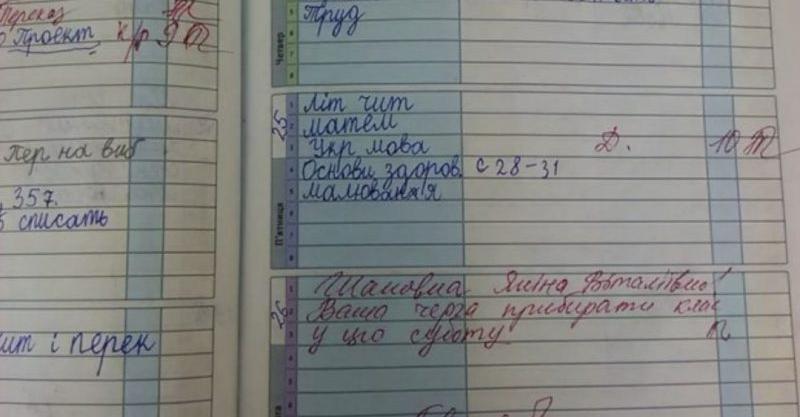 Переказ
Проект к/р 9
пер на виб
357.
списать
і перек
Четвер
5 Труд
6
7
8
25
1 Літ чит
2 матем
3 Укр мова Д. 10
4 Основи здоров. с 28-31
5 малювання
6
7
8
П'ятниця
26
1 Шановна Яніна Віталіївно!
2 Ваша черга прибирати клас
3 у цю суботу
4
5
6